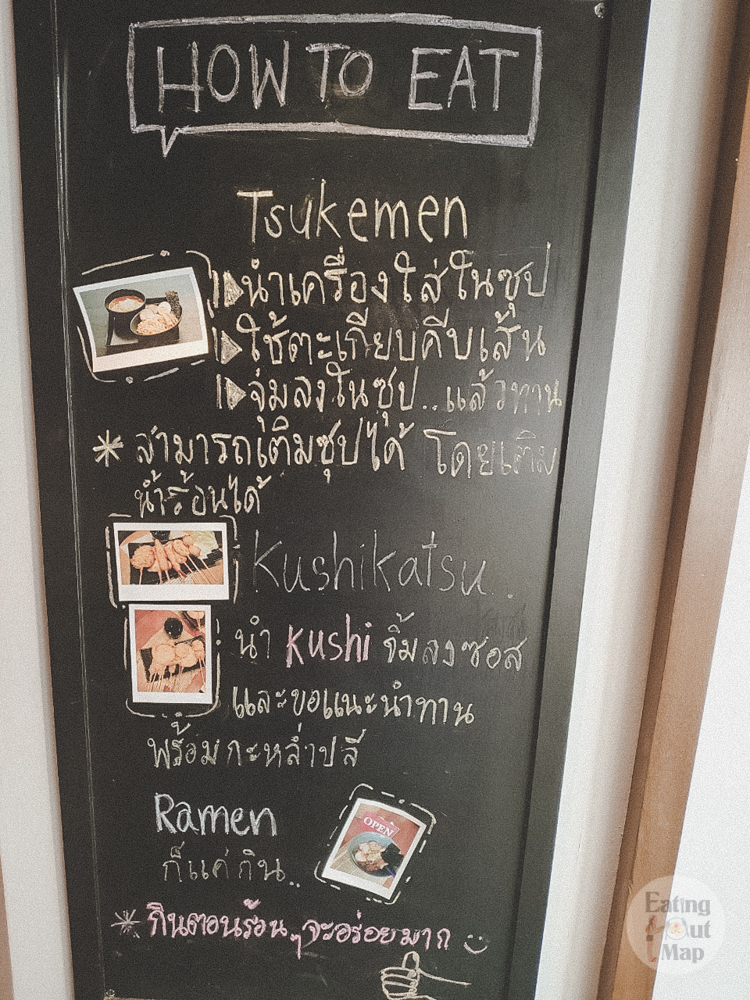 HOW TO EAT
Tsukemen
นำเครื่องใส่ในซุป
ใช้ตะเกียบคีบเส้น
จุ่มลงในซุป..แล้วทาน
* สามารถเติมซุปได้ โดยเติม
น้ำร้อนได้
Kushikatsu.
นำ Kushi จิ้มลงซอส
และขอแนะนำทาน
พร้อมกะหล่ำปลี
Ramen
OPEN
ก็แค่กิน..
* กินตอนร้อนๆจะอร่อยมาก
Eating
Out
Map